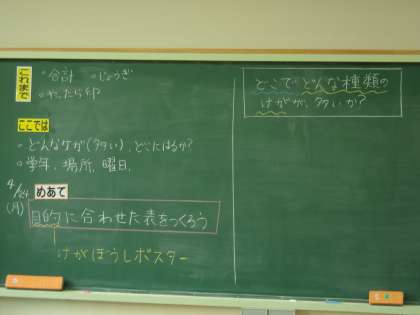 これまで
○合計 ○じょうぎ
○やったら印
ここでは
○どんなケが(多い)、どこにはるか?
○学年、場所、曜日、
4/24
(月)
めあて
目的に合わせた表をつくろう
けがぼうしポスター
どこでどんな種類の
けがが、多いか?